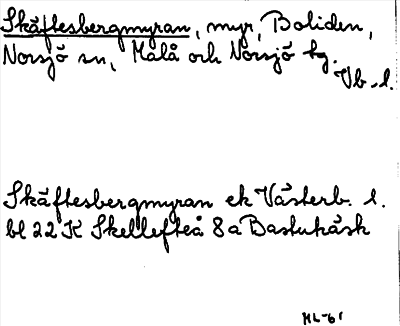 Skäftesbergmyran, myr, Boliden,
Norsjö sn, Malå och Norsjö tg.
Vb. l.
Skäftesbergmyran ek Västerb. l.
bl 22 K Skellefteå 8a Bastukåsk
HL-61